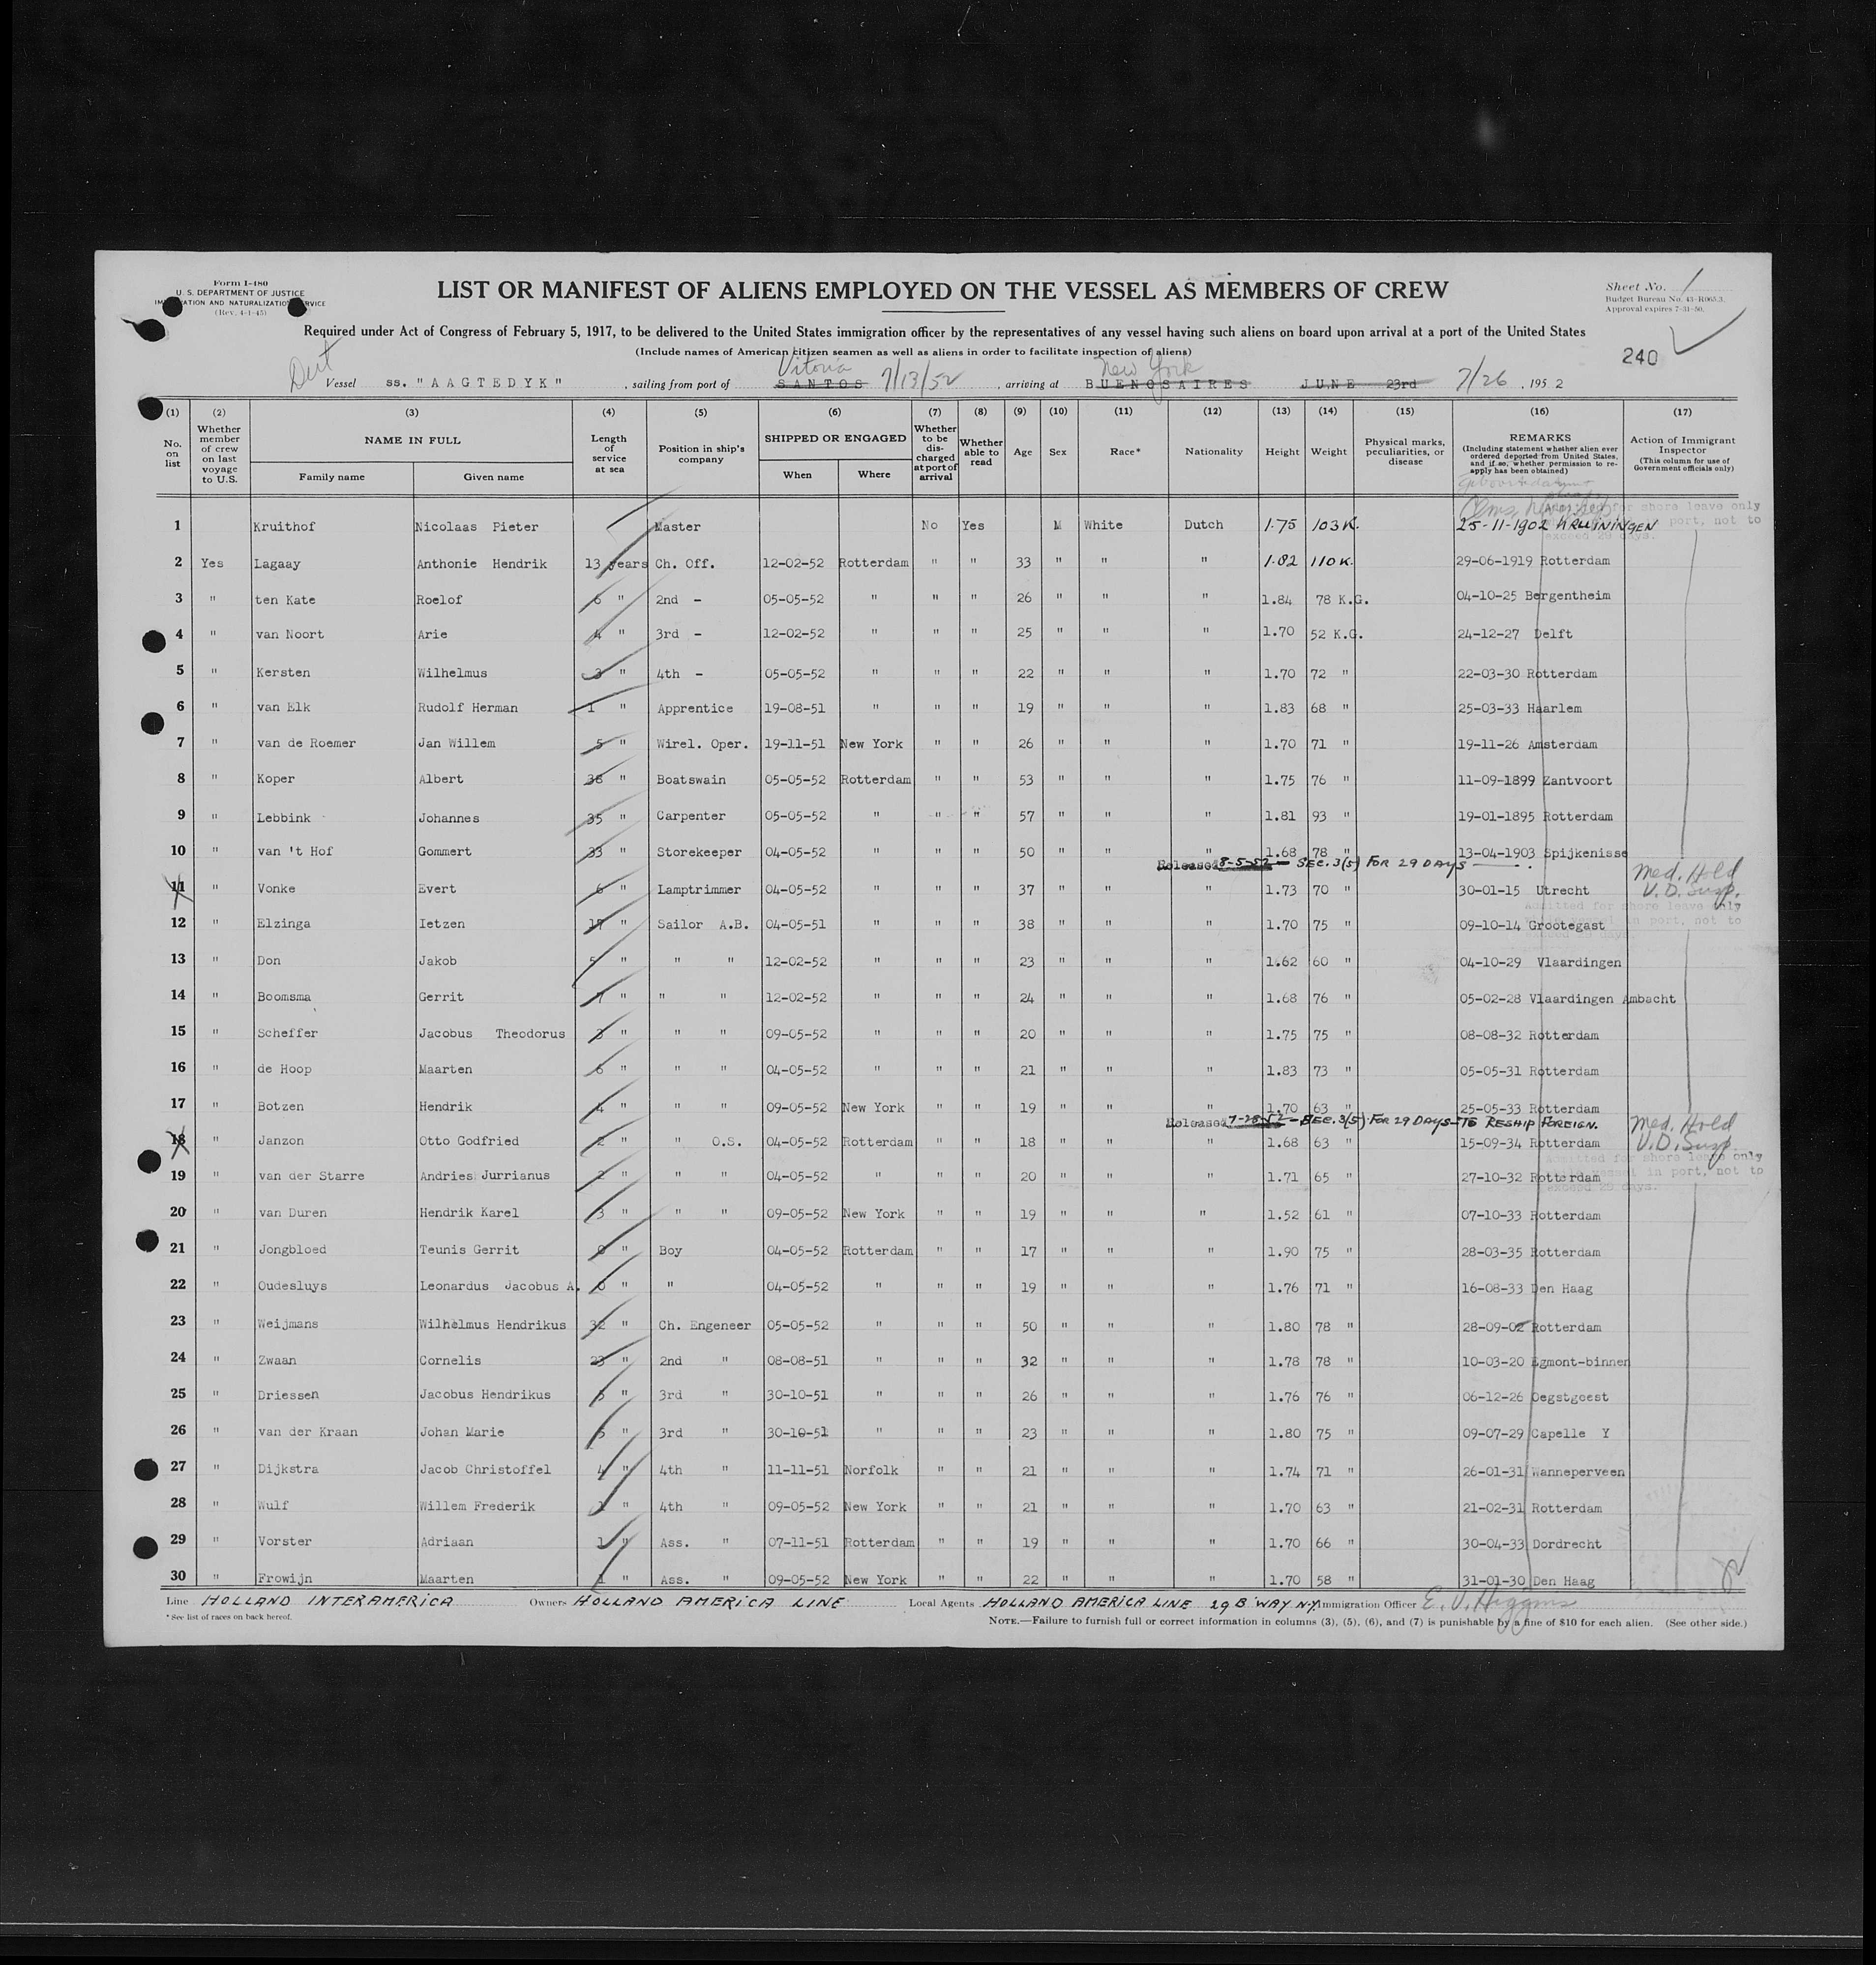 Form I-480
U. S. DEPARTMENT OF JUSTICE
IMMIGRATION AND NATURALIZATION SERVICE
(Rev. 4-1-45)
LIST OR MANIFEST OF ALIENS EMPLOYED ON THE VESSEL AS MEMBERS OF CREW
Sheet No. 1
Budget Bureau No. 43-R065.3.
Approval expires 7-31-50.
Required under Act of Congress of February 5, 1917, to be delivered to the United States immigration officer by the representatives of any vessel having such aliens on board upon arrival at a port of the United States
(Include names of American citizen seamen as well as aliens in order to facilitate inspection of aliens)
240
Dut Vitoria New York
Vessel ss. "AAGTEDYK", sailing from port of SANTOS 7/13/52, arriving at BUENOSAIRES JUNE 23rd 7/26, 1952
(1) (2) (3) (4) (5) (6) (7) (8) (9) (10) (11) (12) (13) (14) (15) (16) (17)
No. on list | Whether member of crew on last voyage to U.S. | NAME IN FULL | Family name | Given name | Length of service at sea | Position in ship's company | SHIPPED OR ENGAGED | When | Where | Whether to be discharged at port of arrival | Whether able to read | Age | Sex | Race* | Nationality | Height | Weight | Physical marks, peculiarities, or disease | REMARKS (Including statement whether alien ever ordered deported from United States, and if so, whether permission to reapply has been obtained) | Action of Immigrant Inspector (This column for use of Government officials only)
1 Kruithof Nicolaas Pieter Master No Yes M White Dutch 1.75 103 K. 25-11-1902 KRUININGEN
for shore leave only
port, not to
exceed 29 days.
2 Yes Lagaay Anthonie Hendrik 13 years Ch. Off. 12-02-52 Rotterdam " " 33 " " " 1.82 110 K. 29-06-1919 Rotterdam
3 " ten Kate Roelof 6 " 2nd - 05-05-52 " " " 26 " " " 1.84 78 K.G. 04-10-25 Bergentheim
4 " van Noort Arie 4 " 3rd - 12-02-52 " " " 25 " " " 1.70 52 K.G. 24-12-27 Delft
5 " Kersten Wilhelmus 3 " 4th - 05-05-52 " " " 22 " " " 1.70 72 " 22-03-30 Rotterdam
6 " van Elk Rudolf Herman 1 " Apprentice 19-08-51 " " " 19 " " " 1.83 68 " 25-03-33 Haarlem
7 " van de Roemer Jan Willem 5 " Wirel. Oper. 19-11-51 New York " " 26 " " " 1.70 71 " 19-11-26 Amsterdam
8 " Koper Albert 38 " Boatswain 05-05-52 Rotterdam " " 53 " " " 1.75 76 " 11-09-1899 Zantvoort
9 " Lebbink Johannes 35 " Carpenter 05-05-52 " " " 57 " " " 1.81 93 " 19-01-1895 Rotterdam
10 " van 't Hof Gommert 33 " Storekeeper 04-05-52 " " " 50 " " " 1.68 78 " 13-04-1903 Spijkenisse
Released 8-5-52 - SEC. 3(5) FOR 29 DAYS
11 " Vonke Evert 6 " Lamptrimmer 04-05-52 " " " 37 " " " 1.73 70 " 30-01-15 Utrecht Med. Hold V.D. Susp.
Admitted for shore leave only
while vessel in port, not to
12 " Elzinga Ietzen 17 " Sailor A.B. 04-05-51 " " " 38 " " " 1.70 75 " 09-10-14 Grootegast
13 " Don Jakob 5 " " " 12-02-52 " " " 23 " " " 1.62 60 " 04-10-29 Vlaardingen
14 " Boomsma Gerrit 7 " " " 12-02-52 " " " 24 " " " 1.68 76 " 05-02-28 Vlaardingen Ambacht
15 " Scheffer Jacobus Theodorus 3 " " " 09-05-52 " " " 20 " " " 1.75 75 " 08-08-32 Rotterdam
16 " de Hoop Maarten 6 " " " 04-05-52 " " " 21 " " " 1.83 73 " 05-05-31 Rotterdam
17 " Botzen Hendrik 4 " " " 09-05-52 New York " " 19 " " " 1.70 63 " 25-05-33 Rotterdam
Released 7-28-52 - SEC. 3(5) FOR 29 DAYS - TO RESHIP FOREIGN.
18 " Janzon Otto Godfried 2 " " O.S. 04-05-52 Rotterdam " " 18 " " " 1.68 63 " 15-09-34 Rotterdam Med. Hold V.D. Susp.
Admitted for shore leave only
while vessel in port, not to
exceed 29 days.
19 " van der Starre Andries Jurrianus 2 " " " 04-05-52 " " " 20 " " " 1.71 65 " 27-10-32 Rotterdam
20 " van Duren Hendrik Karel 3 " " " 09-05-52 New York " " 19 " " " 1.52 61 " 07-10-33 Rotterdam
21 " Jongbloed Teunis Gerrit 0 " Boy 04-05-52 Rotterdam " " 17 " " " 1.90 75 " 28-03-35 Rotterdam
22 " Oudesluys Leonardus Jacobus A. 0 " " 04-05-52 " " " 19 " " " 1.76 71 " 16-08-33 Den Haag
23 " Weijmans Wilhelmus Hendrikus 32 " Ch. Engeneer 05-05-52 " " " 50 " " " 1.80 78 " 28-09-02 Rotterdam
24 " Zwaan Cornelis 23 " 2nd " 08-08-51 " " " 32 " " " 1.78 78 " 10-03-20 Egmont-binnen
25 " Driessen Jacobus Hendrikus 5 " 3rd " 30-10-51 " " " 26 " " " 1.76 76 " 06-12-26 Oegstgeest
26 " van der Kraan Johan Marie 5 " 3rd " 30-10-51 " " " 23 " " " 1.80 75 " 09-07-29 Capelle Y
27 " Dijkstra Jacob Christoffel 4 " 4th " 11-11-51 Norfolk " " 21 " " " 1.74 71 " 26-01-31 Wanneperveen
28 " Wulf Willem Frederik 1 " 4th " 09-05-52 New York " " 21 " " " 1.70 63 " 21-02-31 Rotterdam
29 " Vorster Adriaan 1 " Ass. " 07-11-51 Rotterdam " " 19 " " " 1.70 66 " 30-04-33 Dordrecht
30 " Frowijn Maarten 1 " Ass. " 09-05-52 New York " " 22 " " " 1.70 58 " 31-01-30 Den Haag
Line HOLLAND INTERAMERICA Owners HOLLAND AMERICA LINE Local Agents HOLLAND AMERICA LINE 29 B'WAY N.Y. Immigration Officer E. J. Higgins
* See list of races on back hereof.
NOTE.—Failure to furnish full or correct information in columns (3), (5), (6), and (7) is punishable by a fine of $10 for each alien. (See other side.)